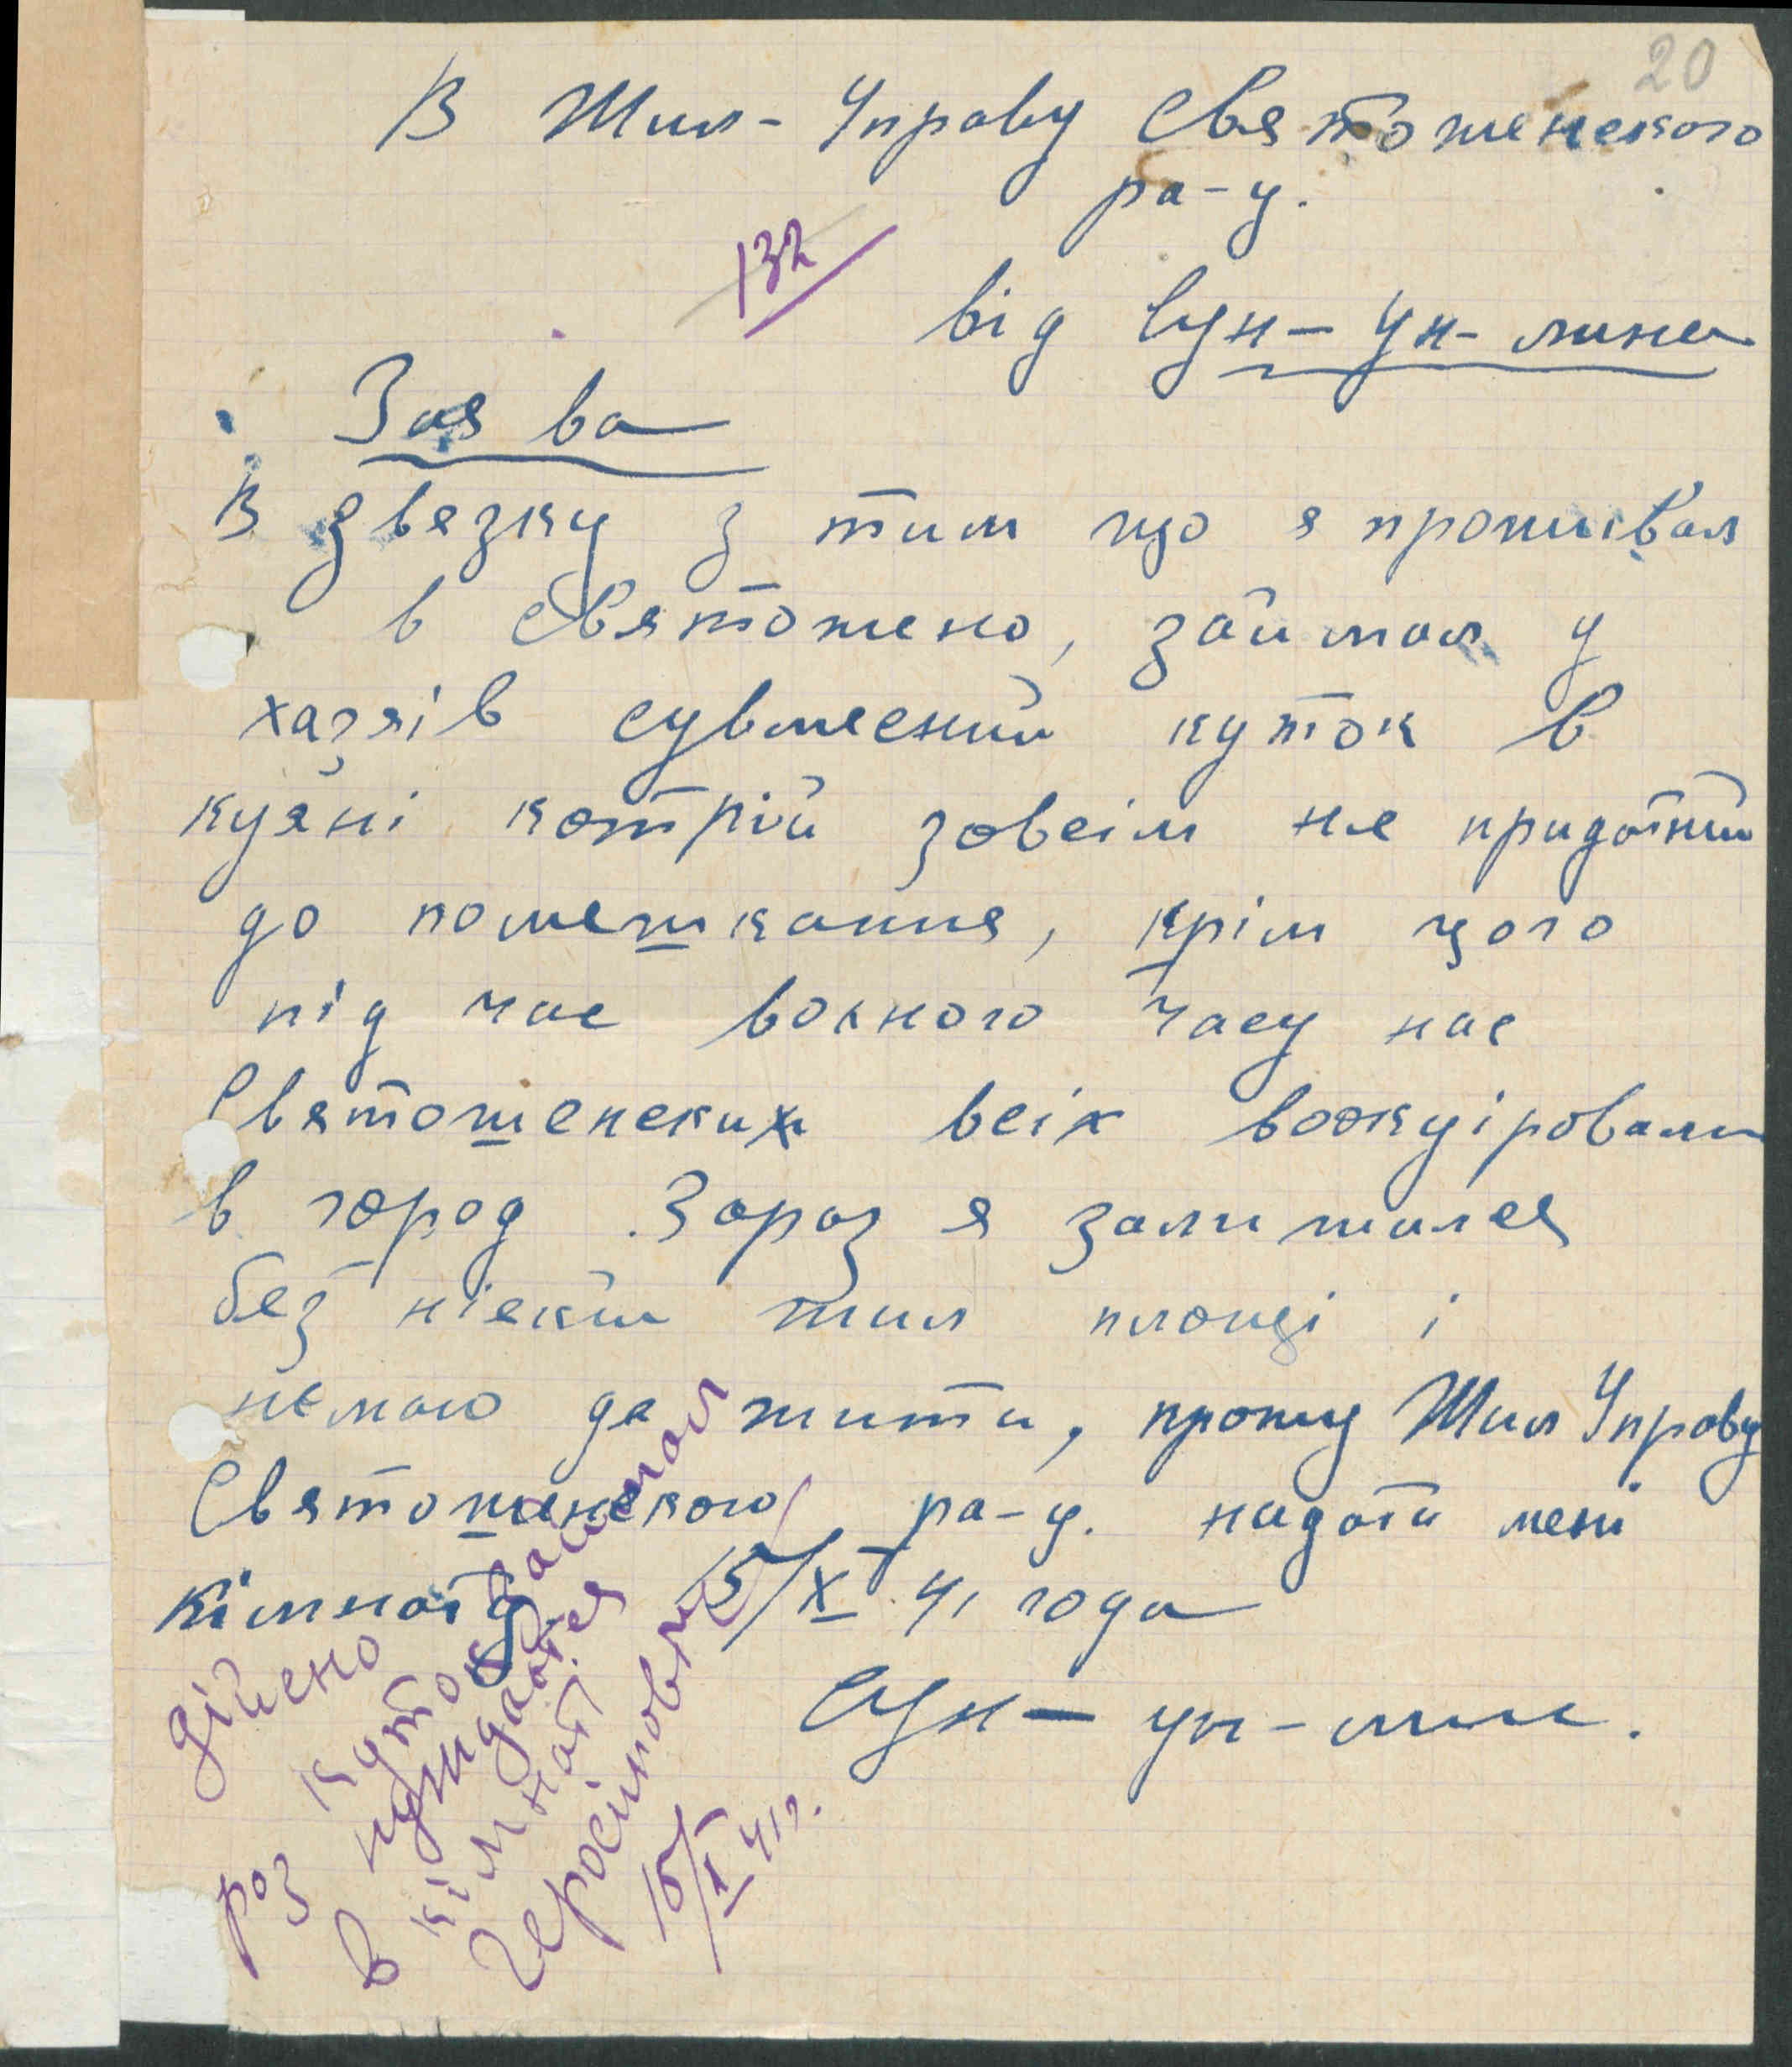 20
В Жил-Управу Святошенского
ра-у.
132
від Сун-Ун-лина
Заява
В звязку з тим що я проживал
в Святошено, займал у
хазяів сувмесний куток в
кухні котрій зовсім не придатний
до помешкання, крім цого
під час воєного часу нас
Святошенских всіх воэкуіровали
в город. Зараз я залишился
без ніякій жил площі і
немаю де жити, прошу Жил Управу
Святошинского ра-у. надати мені
кімнату 15/X 41 года
Сун-ун-лин.
дійсно займал
куток
раз нуждаєтся
в кімнаті
15/X 41г.